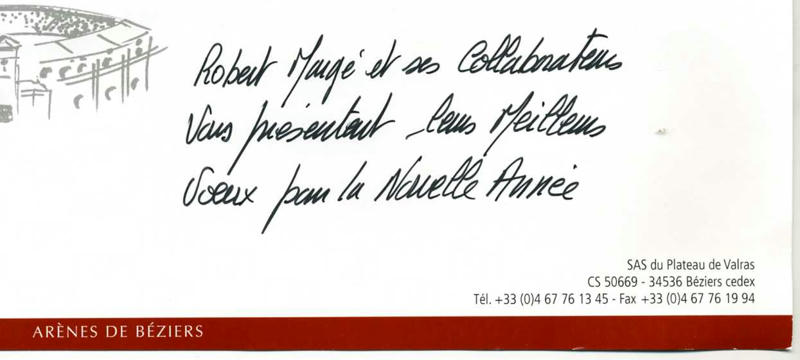 Robert Margé et ses Collaborateurs
Vous présentent leurs Meilleurs
Voeux pour la Nouvelle Année
SAS du Plateau de Valras
CS 50669 - 34536 Béziers cedex
Tél. +33 (0)4 67 76 13 45 - Fax +33 (0)4 67 76 19 94
ARÈNES DE BÉZIERS